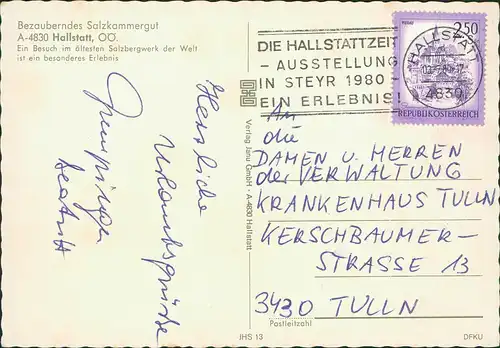 Bezauberndes Salzkammergut
A-4830 Hallstatt, OÖ.
Ein Besuch im ältesten Salzbergwerk der Welt
ist ein besonderes Erlebnis
Herzliche
Urlaubsgrüße
Beatrix
Verlag Janu GmbH · A-4830 Hallstatt
DIE HALLSTATTZEIT
- AUSSTELLUNG
IN STEYR 1980 -
EIN ERLEBNIS!
HALLSTATT
4830
2,50
REPUBLIK ÖSTERREICH
An
die
DAMEN U. HERREN
der VERWALTUNG
KRANKENHAUS TULLN
KERSCHBAUMER-
STRASSE 13
3430 TULLN
Postleitzahl
JHS 13
DFKU